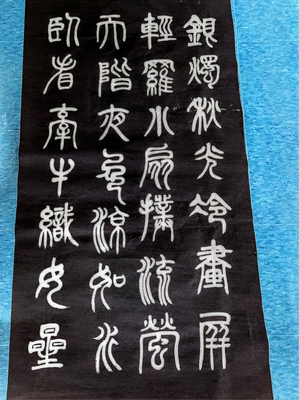 銀燭秋光冷畫屏
輕羅小扇撲流螢
天階夜色涼如水
臥看牽牛織女星